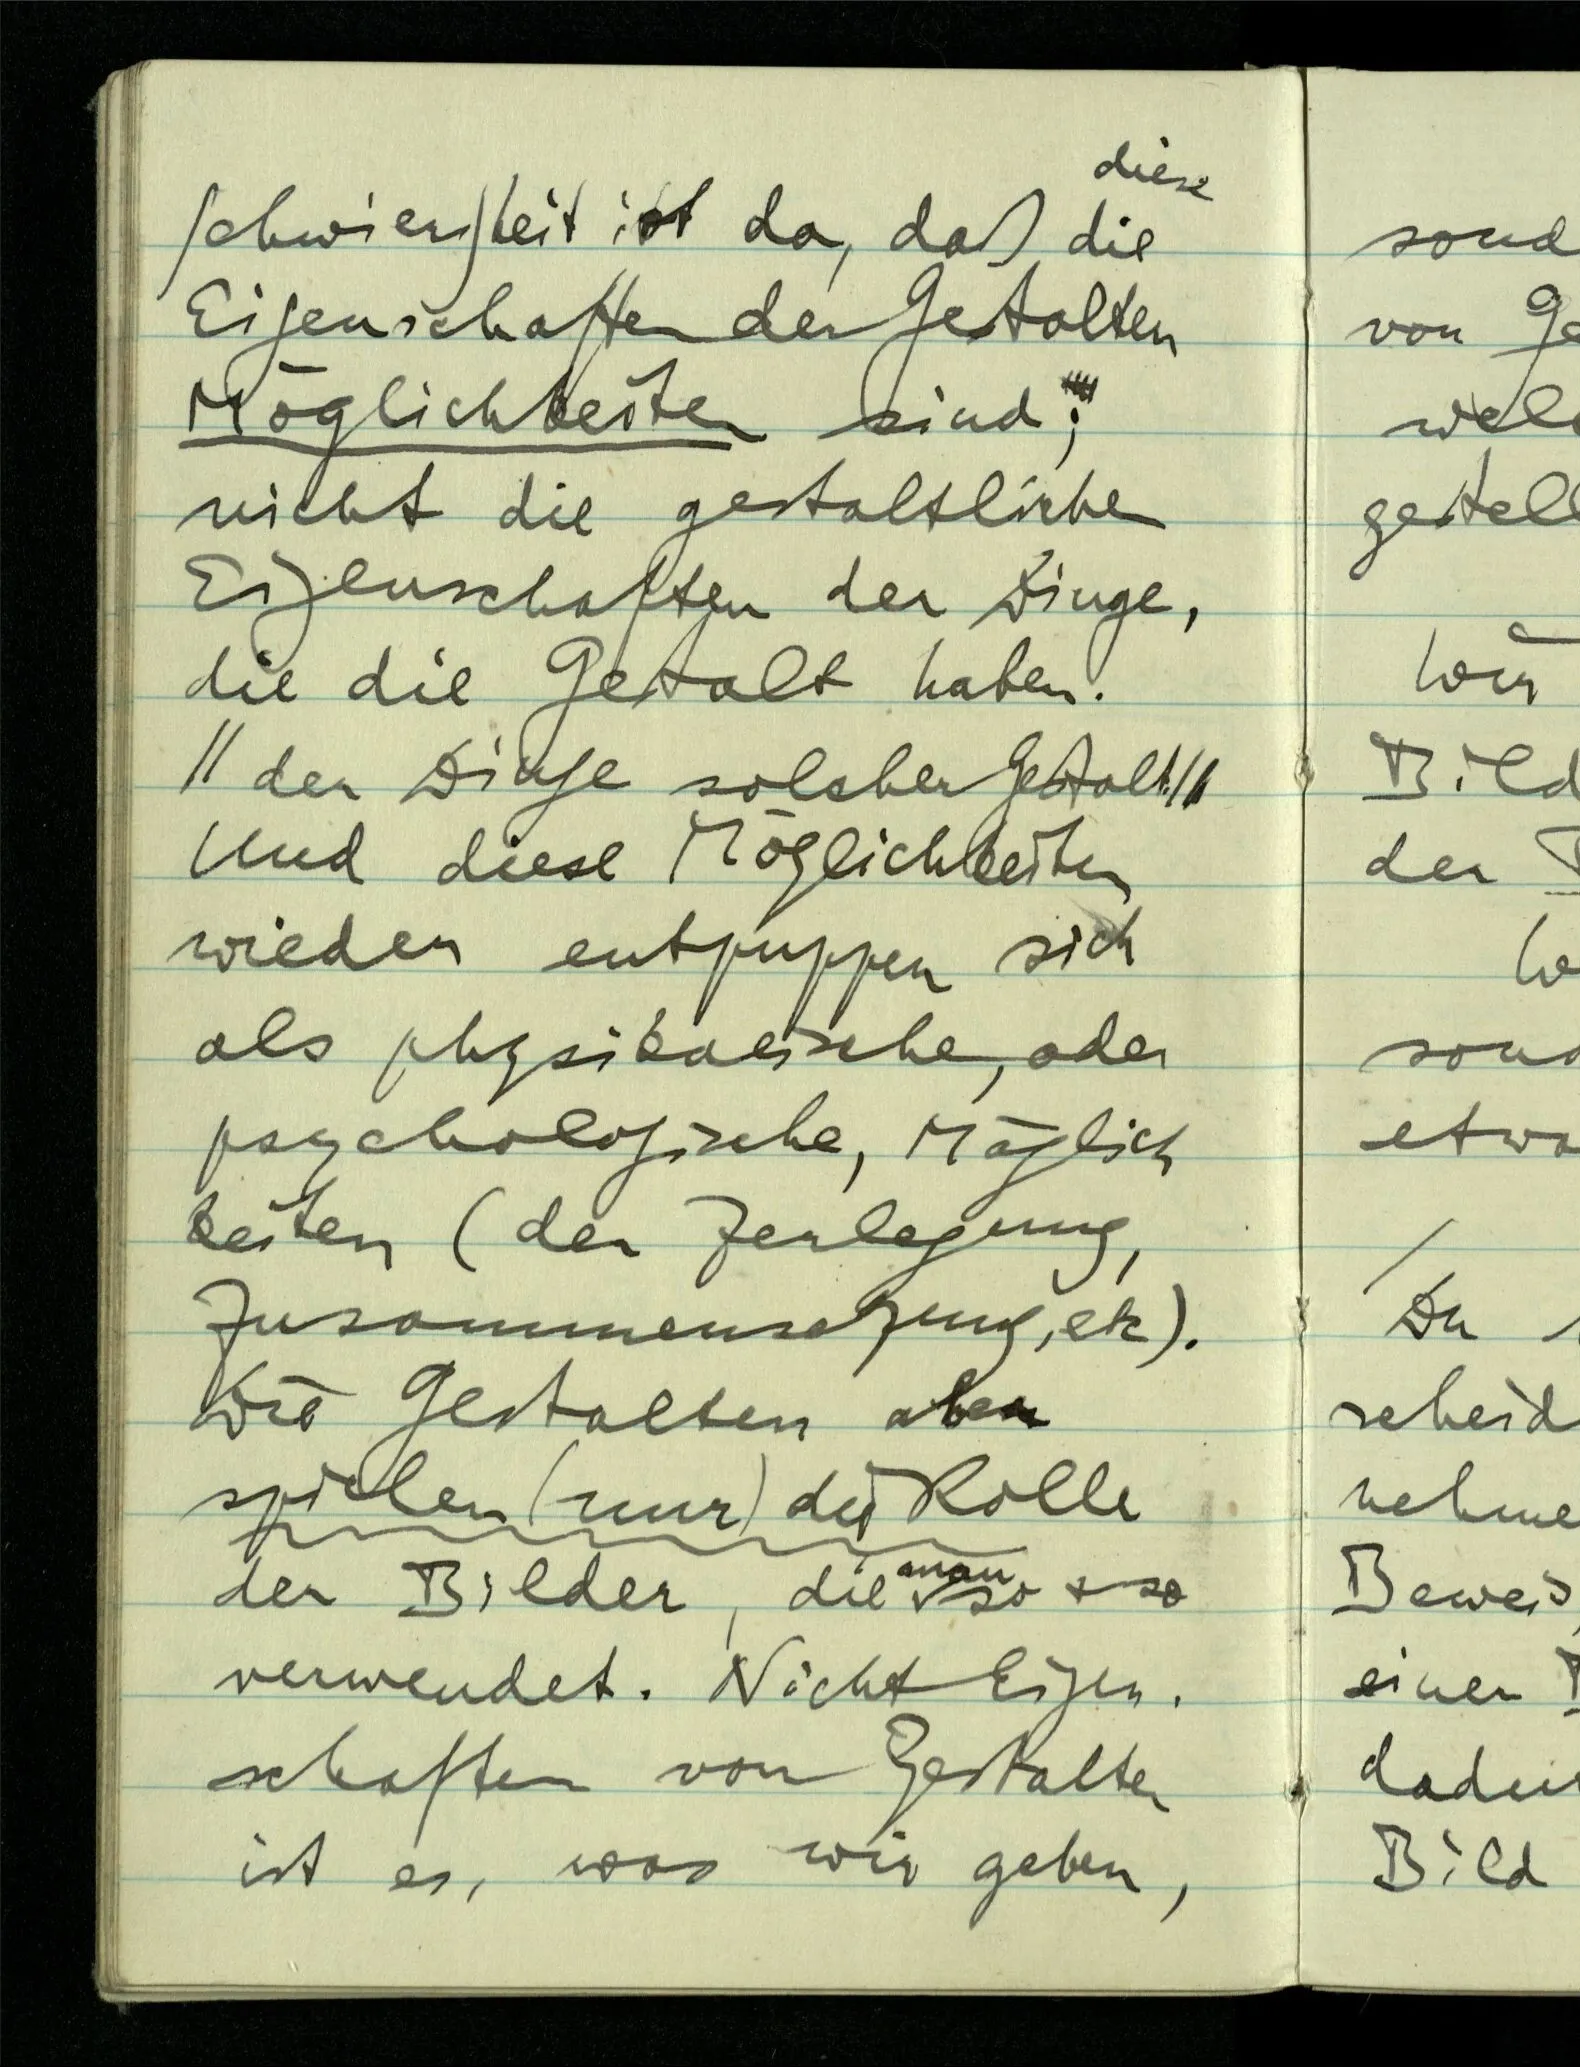 diese
Schwierigkeit ist da, daß die
Eigenschaften der Gestalten
Möglichkeiten sind;
nicht die gestaltliche
Eigenschaften der Dinge,
die die Gestalt haben.
// der Dinge solcher Gestalt.//
Und diese Möglichkeiten
wieder entpuppen sich
als physikalische, oder
psychologische, Möglich
keiten (der Zerlegung,
Zusammensetzung, etc).
Die Gestalten aber
spielen (nur) die Rolle
man
der Bilder, die so & so
verwendet. Nicht Eigen-
schaften von Gestalten
ist es, was wir geben,
sond
von Ge
wel
gestell
Wir
Bild
der
W
sond
etwa
/
Du
scheid
nehme
Beweis,
einer
dadur
Bild